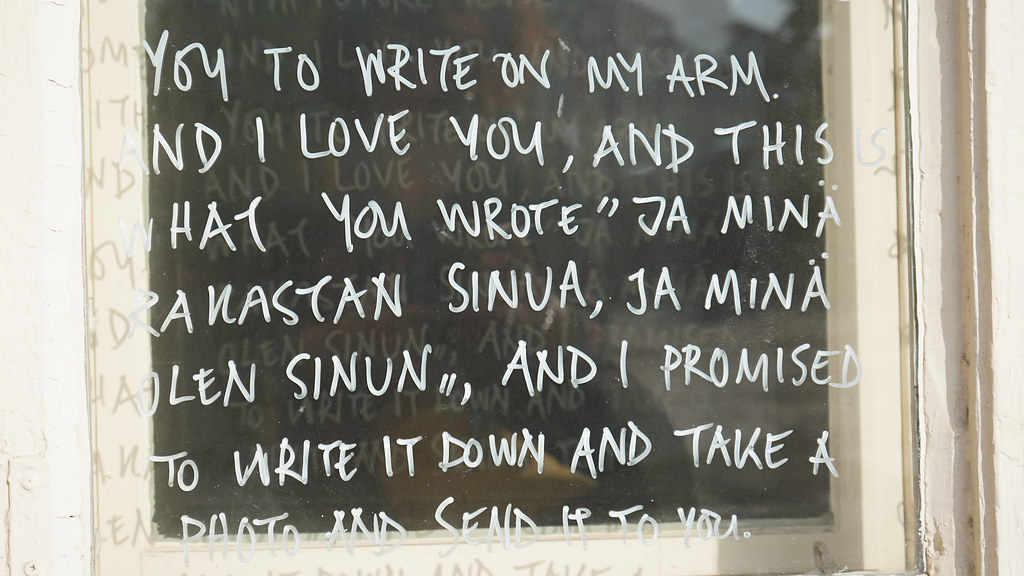 YOU TO WRITE ON MY ARM.
AND I LOVE YOU, AND THIS IS
WHAT YOU WROTE” JA MINÄ
RAKASTAN SINUA, JA MINÄ
OLEN SINUN„, AND I PROMISED
TO WRITE IT DOWN AND TAKE A
PHOTO AND SEND IT TO YOU.